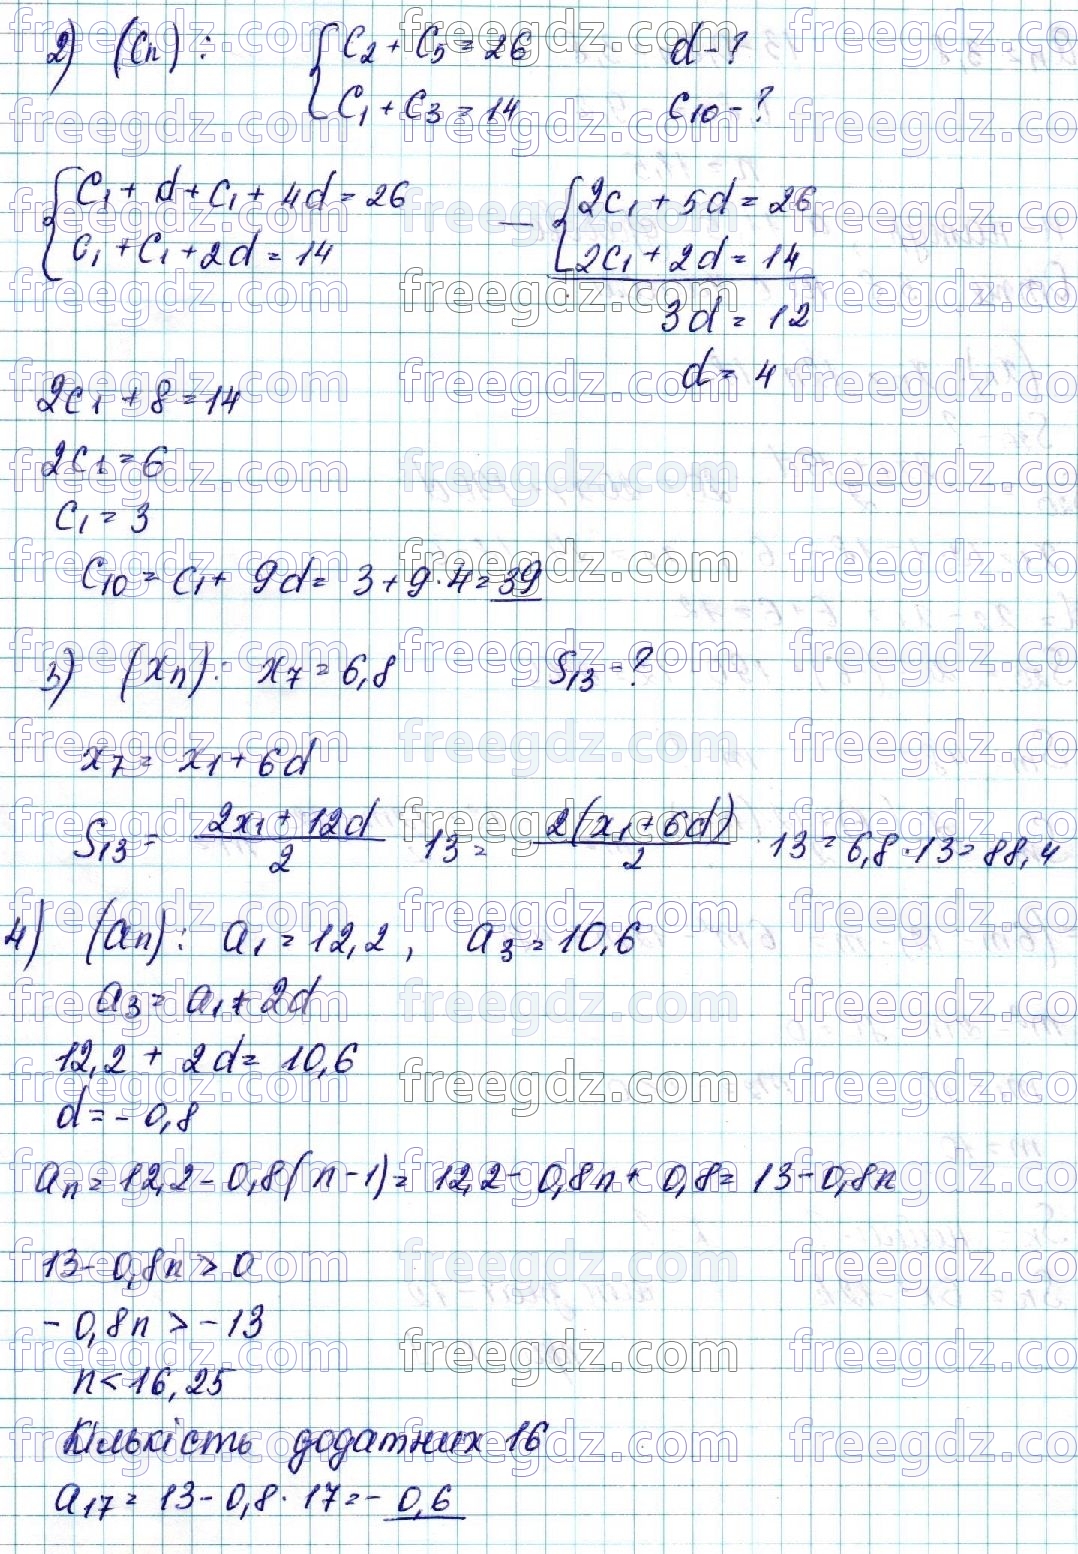 2) (Cn): { C2 + C5 = 26   d - ?
C1 + C3 = 14   C10 - ?
{ C1 + d + C1 + 4d = 26   — { 2C1 + 5d = 26
C1 + C1 + 2d = 14   2C1 + 2d = 14
3d = 12
d = 4
2C1 + 8 = 14
2C1 = 6
C1 = 3
C10 = C1 + 9d = 3 + 9·4 = 39
3) (Xn): X7 = 6,8   S13 - ?
X7 = X1 + 6d
S13 = (2X1 + 12d)/2 · 13 = 2(X1 + 6d)/2 · 13 = 6,8 · 13 = 88,4
4) (an): a1 = 12,2, a3 = 10,6
a3 = a1 + 2d
12,2 + 2d = 10,6
d = - 0,8
an = 12,2 - 0,8(n - 1) = 12,2 - 0,8n + 0,8 = 13 - 0,8n
13 - 0,8n > 0
- 0,8n > - 13
n < 16,25
Кількість додатних 16
a17 = 13 - 0,8 · 17 = - 0,6
freegdz.com